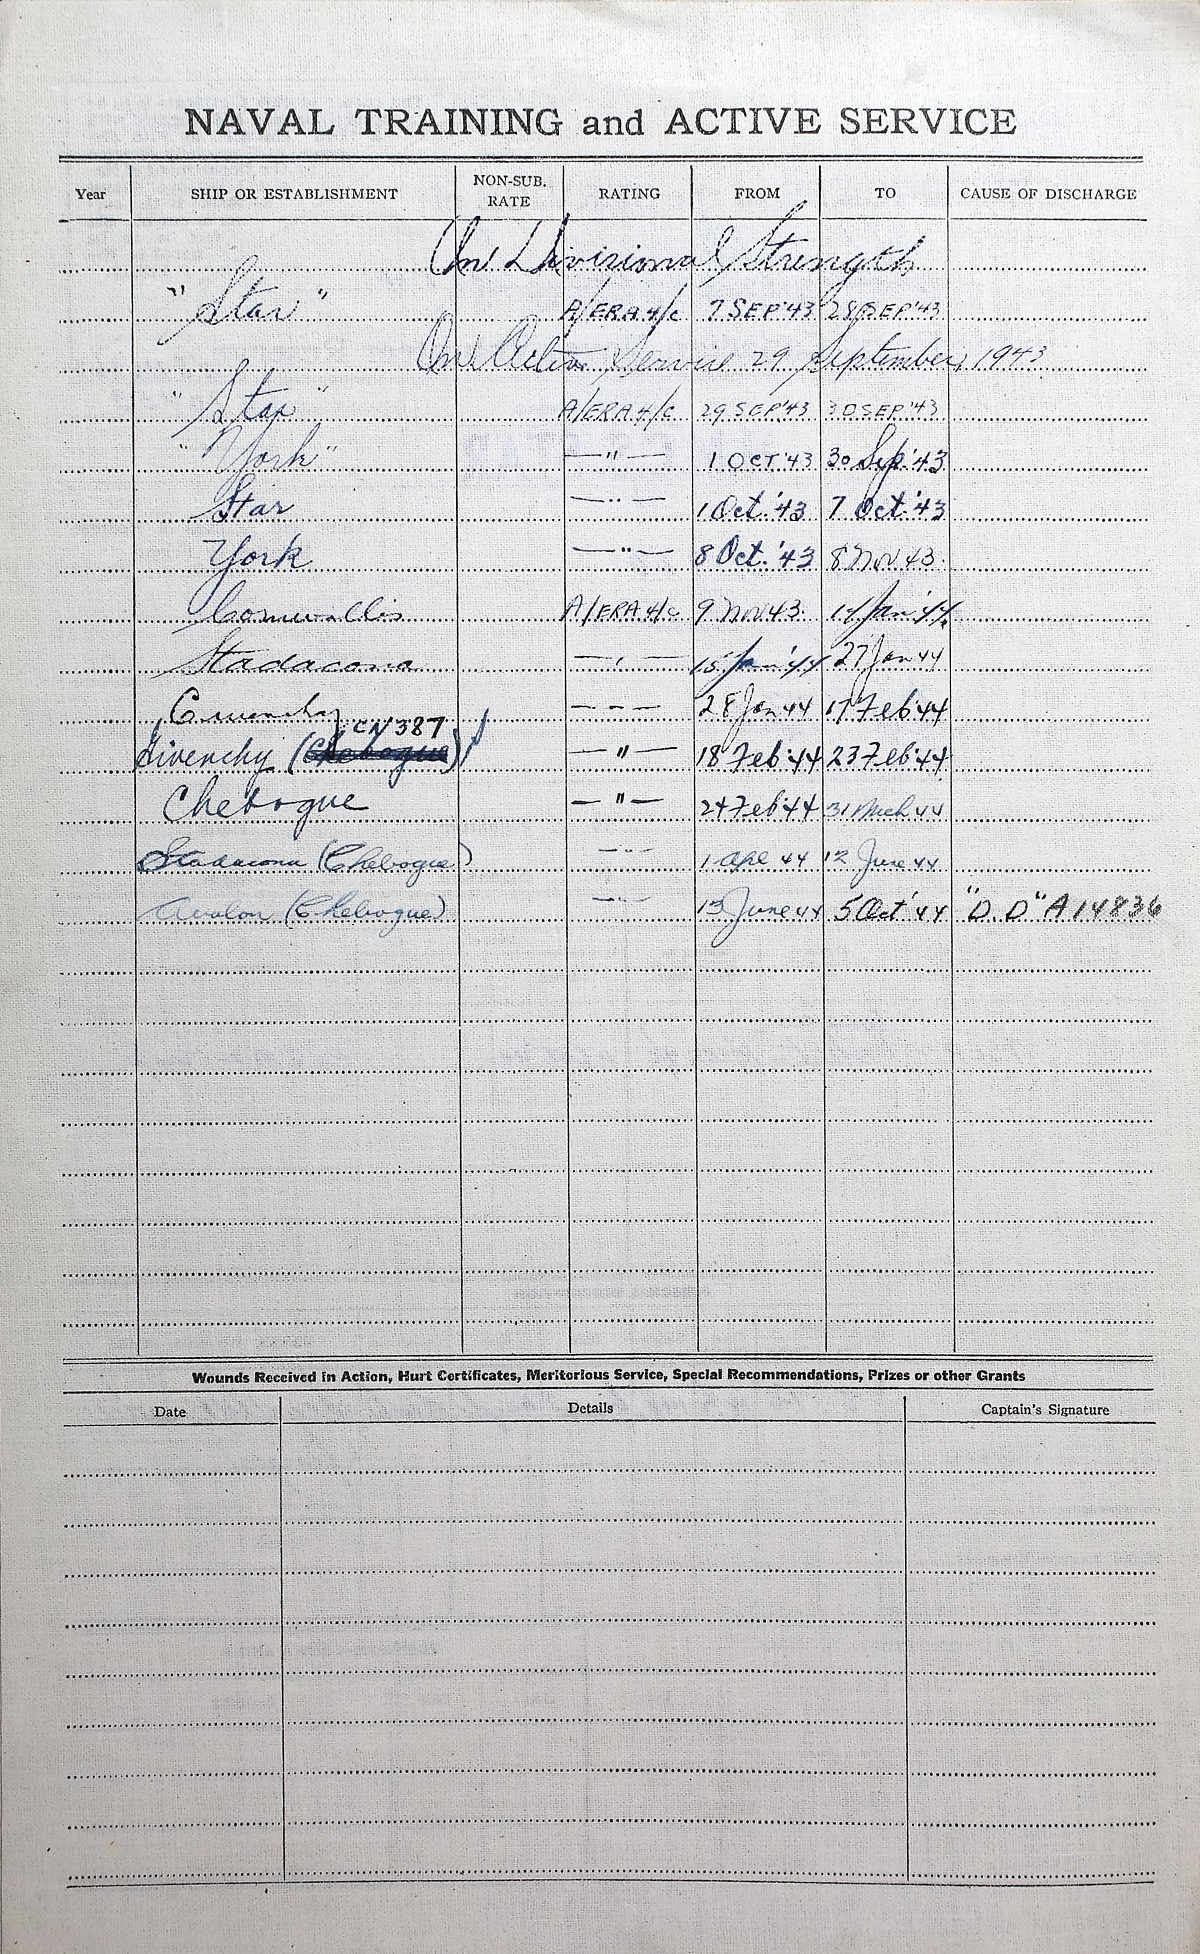 NAVAL TRAINING and ACTIVE SERVICE
Year SHIP OR ESTABLISHMENT NON-SUB. RATE RATING FROM TO CAUSE OF DISCHARGE
On Divisional Strength
"Star" A/ERA 4/c 7 SEP '43 28 SEP '43
On Active Service 29 September, 1943
"Star" A/ERA 4/c 29 SEP '43 30 SEP '43
"York" — " — 1 OCT '43 30 Sep. '43
Star — " — 1 Oct. '43 7 Oct. '43
York — " — 8 Oct. '43 8 Nov 43.
Cornwallis A/ERA 4/c 9 Nov 43. 14 Jan '44
Stadacona — " — 15 Jan '44 27 Jan 44
Givenchy — " — 28 Jan 44 17 Feb '44
CN 387
Givenchy (Chebogue) — " — 18 Feb '44 23 Feb '44
Chebogue — " — 24 Feb '44 31 Mch 44
Stadacona (Chebogue) — " — 1 Apl 44 12 June 44
Avalon (Chebogue) — " — 13 June 44 5 Oct '44 "D.D" A14836
Wounds Received in Action, Hurt Certificates, Meritorious Service, Special Recommendations, Prizes or other Grants
Date Details Captain's Signature